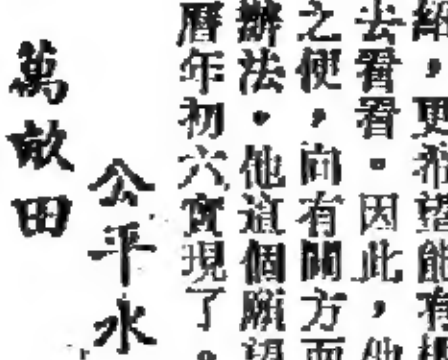 紹，更希望能有機
去看看。因此，他
之便，向有關方面
辦法。他這個願望
曆年初六實現了。
公平水
萬畝田